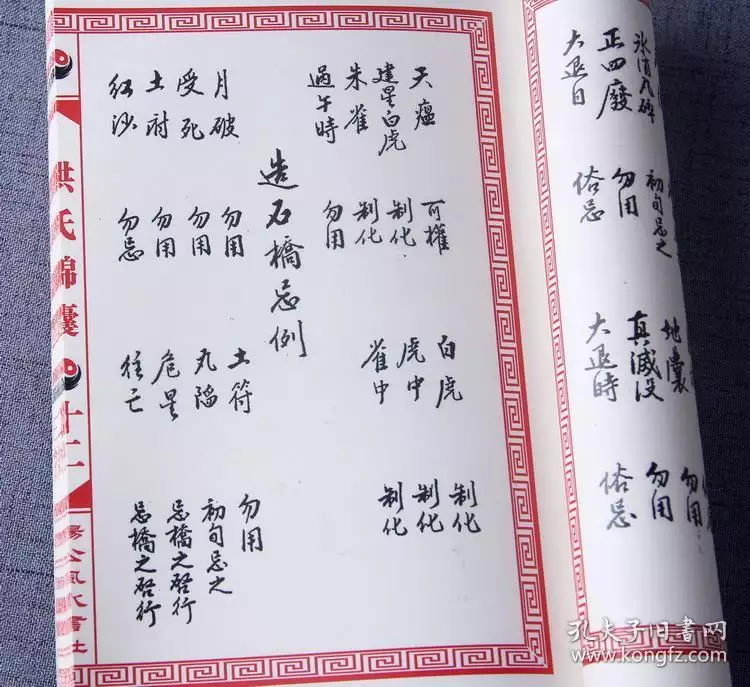 氷消瓦碎 初旬忌之 地囊 勿用
正四廢 勿用 真滅没 勿用
大退日 俗忌 大退時 俗忌
天瘟 可權 白虎 制化
建星白虎 制化 虎中 制化
朱雀 制化 雀中 制化
過午時 勿用
造石橋忌例
月破 勿用 土符 勿用
受死 勿用 丸陷 初旬忌之
土府 勿用 危星 忌橋之啓行
紅沙 勿忌 往亡 忌橋之啓行
洪氏錦囊 十二 楊公風水書社
孔夫子旧书网
www.kongfz.com